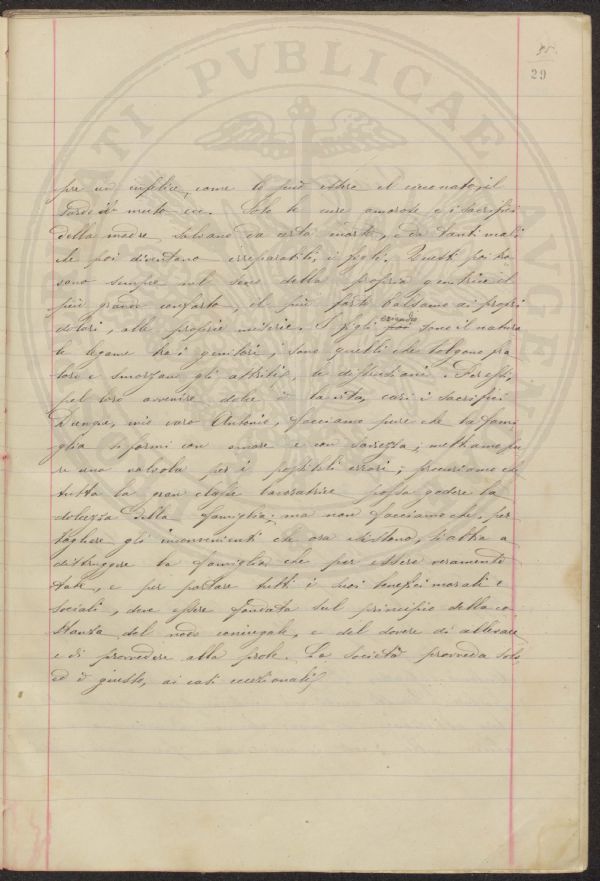 29
pre un infelice, come lo può essere il cieco nato, il
sordo il muto ecc. Solo le cure amorose e i sacrifici
della madre salvano da certa morte, e da tanti mali
che poi diventano irreparabili, i figli. Questi poi tro
vano sempre nel seno della propria genitrice il
più grande conforto, il più forte balsamo ai propri
dolori, alle proprie miserie. I figli essendo sono il natura
le legame tra i genitori, sono quelli che tolgono fra
loro e smorzano gli attriti, le distruzioni. Per essi,
pel loro avvenire dolce è la vita, cari i sacrifici
Dunque, mio caro Antonio, facciamo pure che la fami
glia si formi con amore e con saviezza; mettiamo pu
re una valvola per i possibili errori; procuriamo che
tutta la gran classe lavoratrice possa godere la
dolcezza della famiglia; ma non facciamo che, per
togliere gli inconvenienti che ora esistono, si abbia a
distruggere la famiglia che per essere veramente
tale, e per portare tutti i suoi benefici morali e
sociali, deve essere fondata sul principio della co
stanza del nodo coniugale, e del dovere di allevare
e di provvedere alla prole. La Società provveda solo
ed è giusto, ai casi eccezionali
PVBLICAE